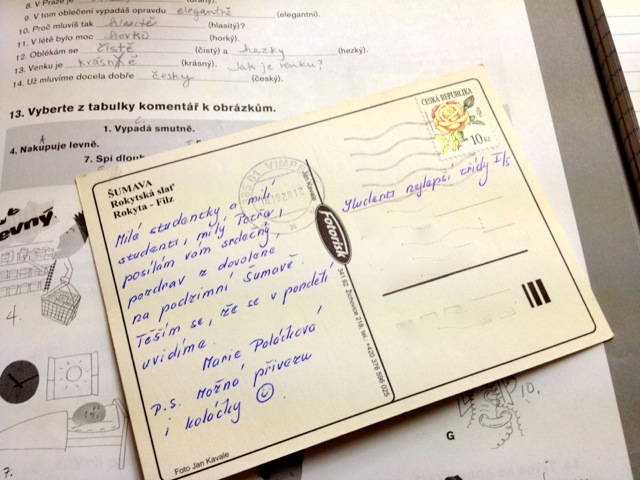 8. V Praze je
9. V tom oblečení vypadáš opravdu elegantně (elegantní).
10. Proč mluvíš tak hlasitě (hlasitý)?
11. V létě bylo moc horko (horký).
12. Oblékám se čistě (čistý) a hezky (hezký).
13. Venku je krásně (krásný). Jak je venku?
14. Už mluvíme docela dobře česky (český).
13. Vyberte z tabulky komentář k obrázkům.
1. Vypadá smutně.
4. Nakupuje levně.
7. Spí dlouh
evný
4.
7.
10.
G
ŠUMAVA
Rokytská slať
Rokyta - Filz
Milé studentky a milí
studenti, milý Petře,
posílám vám srdečný
pozdrav z dovolené
na podzimní Šumavě.
Těším se, že se v pondělí
uvidíme.
Marie Poláčková
p.s. Možná přivezu
i koláčky
Foto Jan Kavale
Jan Kavale
Fotorisk
341 92 Žichovice 216, tel.: +420 376 596 025
385 01 VIMPE
ČESKÁ REPUBLIKA
10 Kč
Studenti nejlepší třídy I/5